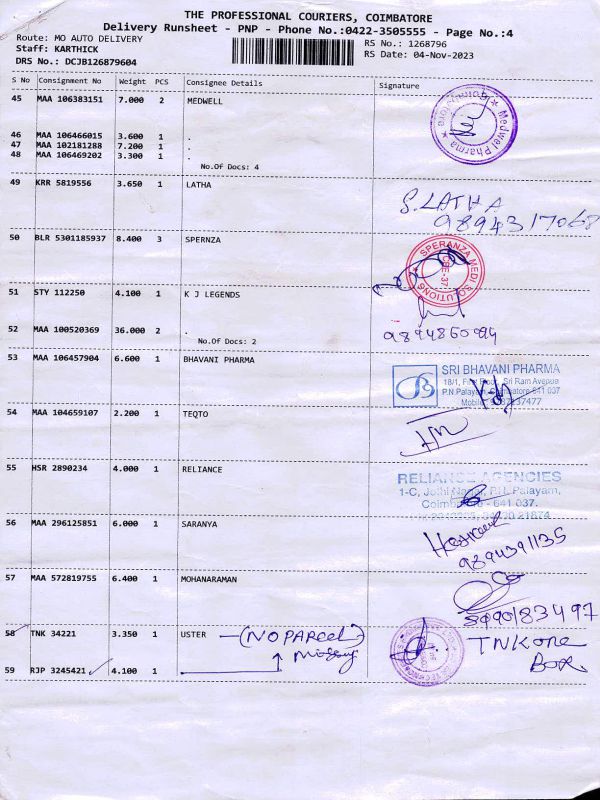 THE PROFESSIONAL COURIERS, COIMBATORE
Delivery Runsheet - PNP - Phone No.:0422-3505555 - Page No.:4
Route: MO AUTO DELIVERY
RS No.: 1268796
Staff: KARTHICK
RS Date: 04-Nov-2023
DRS No.: DCJB126879604
S No Consignment No Weight PCS Consignee Details Signature
45 MAA 106383151 7.000 2 MEDWELL
Medwel Pharma
46 MAA 106466015 3.600 1 .
47 MAA 102181288 7.200 1 .
48 MAA 106469202 3.300 1 .
No.Of Docs: 4
49 KRR 5819556 3.650 1 LATHA
S.LATHA
9894317068
50 BLR 5301185937 8.400 3 SPERNZA
SPERANZA MEDI SOLUTIONS
CBE-37
51 STY 112250 4.100 1 K J LEGENDS
52 MAA 100520369 36.000 2 .
No.Of Docs: 2
9894860994
53 MAA 106457904 6.600 1 BHAVANI PHARMA
SRI BHAVANI PHARMA
18/1, First Floor, Sri Ram Avenue
P.N.Palayam, Coimbatore-641 037
54 MAA 104659107 2.200 1 TEQTO
55 HSR 2890234 4.000 1 RELIANCE
RELIANCE AGENCIES
1-C, Jothi Nagar, P.N. Palayam,
Coimbatore - 641 037.
56 MAA 296125851 6.000 1 SARANYA
9894391135
57 MAA 572819755 6.400 1 MOHANARAMAN
58 TNK 34221 3.350 1 USTER (NO PARCEL) TNK one
Missing Box
59 RJP 3245421 4.100 1